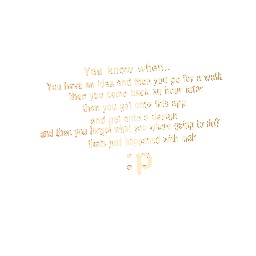 You know when...
You have an idea and then you go for a walk
Then you come back an hour later
Then you get onto this app
and get onto a design
and then you forget what you where going to do?
That just happened with
:p